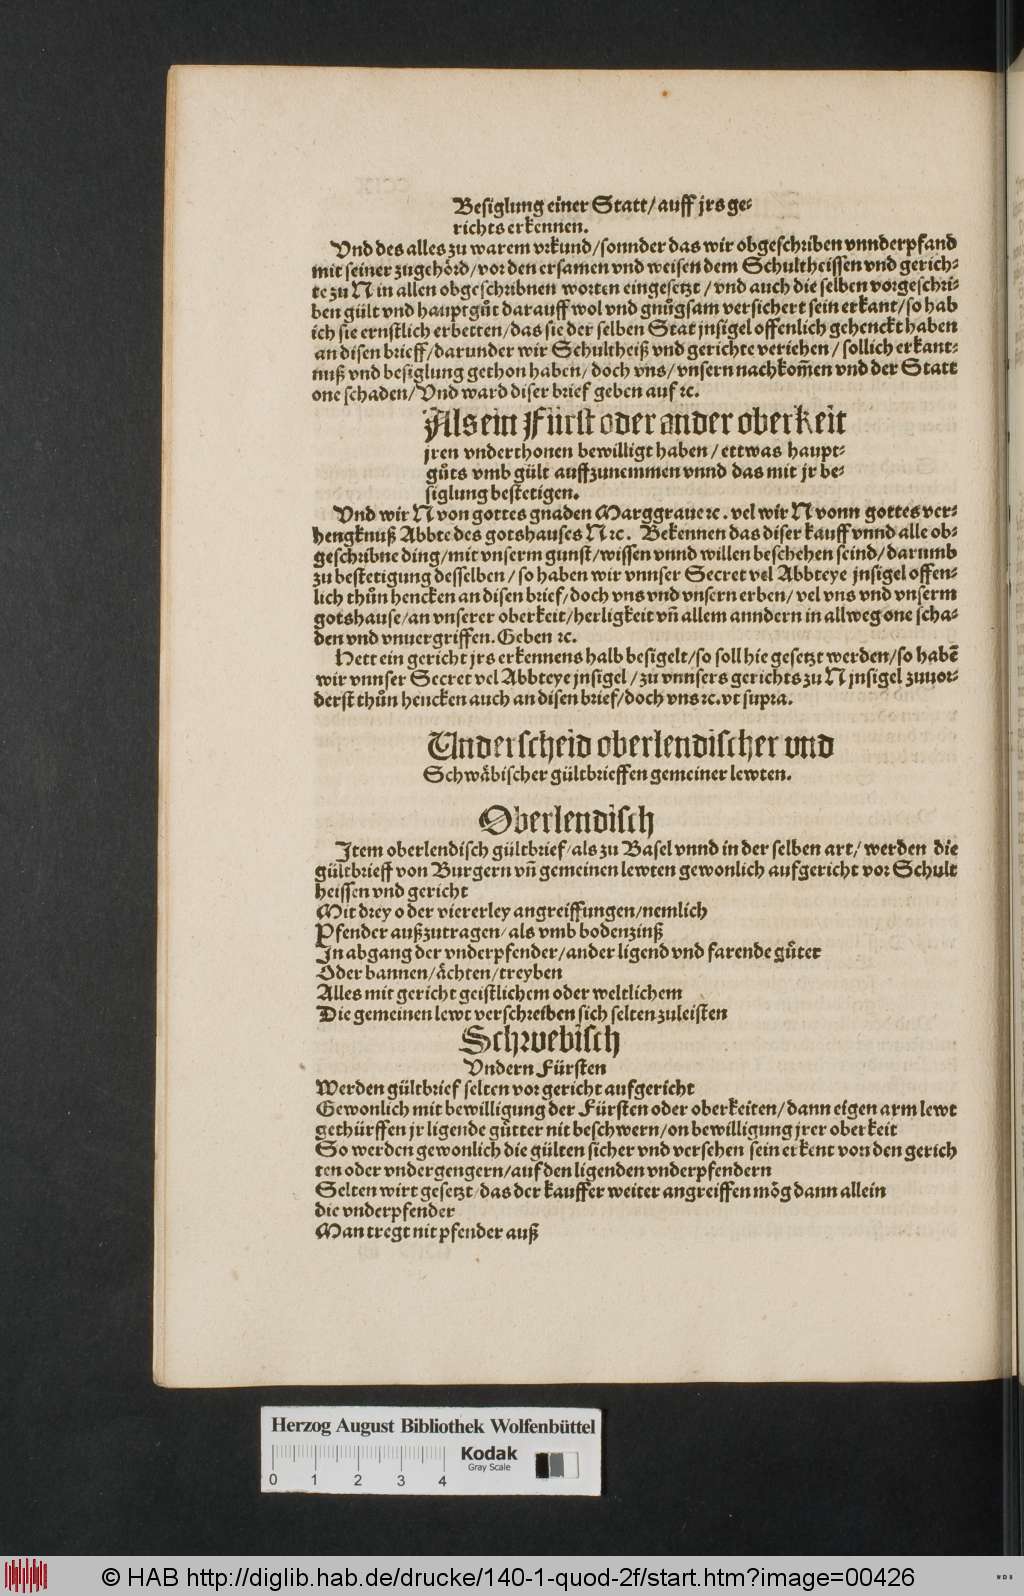 Besiglung einer Statt/ auff jrs ge⸗
richts erkennen.
Vnd des alles zu warem vrkund/ sonnder das wir obgeschriben vnnderpfand
mit seiner zugehörd/ vor den ersamen vnd weisen dem Schultheissen vnd gerich⸗
te zu N in allen obgeschribnen worten eingesetzt / vnd auch die selben vorgeschri⸗
ben gült vnd hauptgůt darauff wol vnd gnůgsam versichert sein erkant/ so hab
ich sie ernstlich erbetten/ das sie der selben Stat jnsigel offenlich gehenckt haben
an disen brieff/ darunder wir Schultheiß vnd gerichte veriehen / sollich erkant⸗
nuß vnd besiglung gethon haben/ doch vns/ vnsern nachkom̄en vnd der Statt
one schaden/ Vnd ward diser brief geben auf ꝛc.
Als ein Fürst oder ander oberkeit
jren vnderthonen bewilligt haben / ettwas haupt⸗
gůts vmb gült auffzunemmen vnnd das mit jr be⸗
siglung bestetigen.
Vnd wir N von gottes gnaden Marggraue ꝛc. vel wir N vonn gottes ver⸗
hengknuß Abbte des gotshauses N ꝛc. Bekennen das diser kauff vnnd alle ob⸗
geschribne ding/ mit vnserm gunst/ wissen vnnd willen beschehen seind/ darumb
zu bestetigung desselben / so haben wir vnnser Secret vel Abbteye jnsigel offen⸗
lich thůn hencken an disen brief/ doch vns vnd vnsern erben/ vel vns vnd vnserm
gotshause/ an vnserer oberkeit/ herligkeit vn̄ allem anndern in allweg one scha⸗
den vnd vnuergriffen. Geben ꝛc.
Hett ein gericht jrs erkennens halb besigelt/ so soll hie gesetzt werden/ so habē
wir vnnser Secret vel Abbteye jnsigel / zu vnnsers gerichts zu N jnsigel zuuor⸗
derst thůn hencken auch an disen brief/ doch vns ꝛc. vt supra.
Underscheid oberlendischer und
Schwäbischer gültbrieffen gemeiner lewten.
Oberlendisch
Item oberlendisch gültbrief/ als zu Basel vnnd in der selben art/ werden die
gültbrieff von Burgern vn̄ gemeinen lewten gewonlich aufgericht vor Schult
heissen vnd gericht
Mit drey oder viererley angreiffungen/ nemlich
Pfender außzutragen/ als vmb bodenzinß
In abgang der vnderpfender/ ander ligend vnd farende gůter
Oder bannen/ ächten/ treyben
Alles mit gericht geistlichem oder weltlichem
Die gemeinen lewt verschreiben sich selten zuleisten
Schwebisch
Vndern Fürsten
Werden gültbrief selten vor gericht aufgericht
Gewonlich mit bewilligung der Fürsten oder oberkeiten/ dann eigen arm lewt
gethürffen jr ligende gůtter nit beschwern/ on bewilligung jrer oberkeit
So werden gewonlich die gülten sicher vnd versehen sein erkent von den gerich
ten oder vndergengern/ auf den ligenden vnderpfendern
Selten wirt gesetzt/ das der kauffer weiter angreiffen mög dann allein
die vnderpfender
Man tregt nit pfender auß
Herzog August Bibliothek Wolfenbüttel
Kodak
Gray Scale
0 1 2 3 4
© HAB http://diglib.hab.de/drucke/140-1-quod-2f/start.htm?image=00426